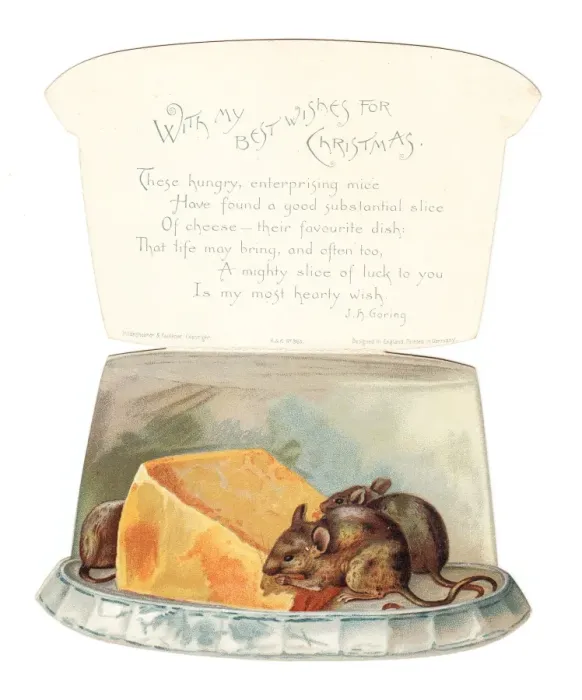 With my best wishes for Christmas.
These hungry, enterprising mice
Have found a good substantial slice
Of cheese — their favourite dish:
That life may bring, and often too,
A mighty slice of luck to you
Is my most hearty wish
J.H. Goring
Hildesheimer & Faulkner, Copyright.
Designed in England, Printed in Germany.